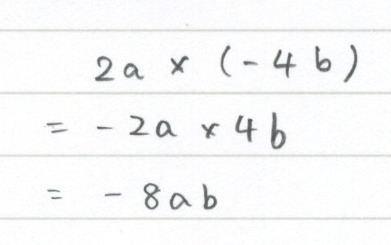 2a × (-4b)
= -2a × 4b
= -8ab